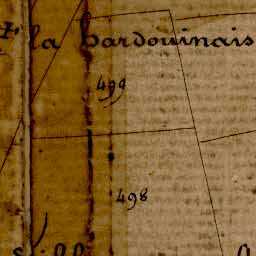 la bardouinais
499
498